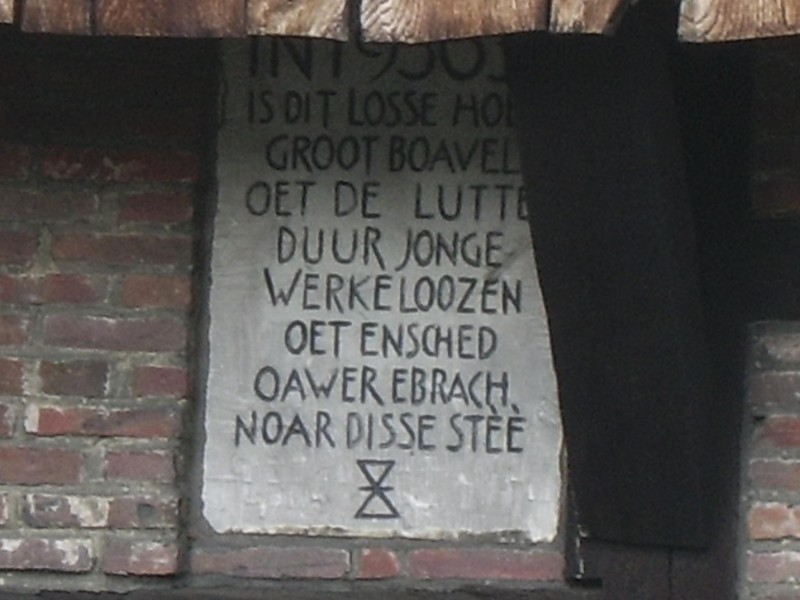 IS DIT LOSSE
GROOT BOAVEL
OET DE LUTTE
DUUR JONGE
WERKELOOZEN
OET ENSCHED
OAWER EBRACH.
NOAR DISSE STÈÈ